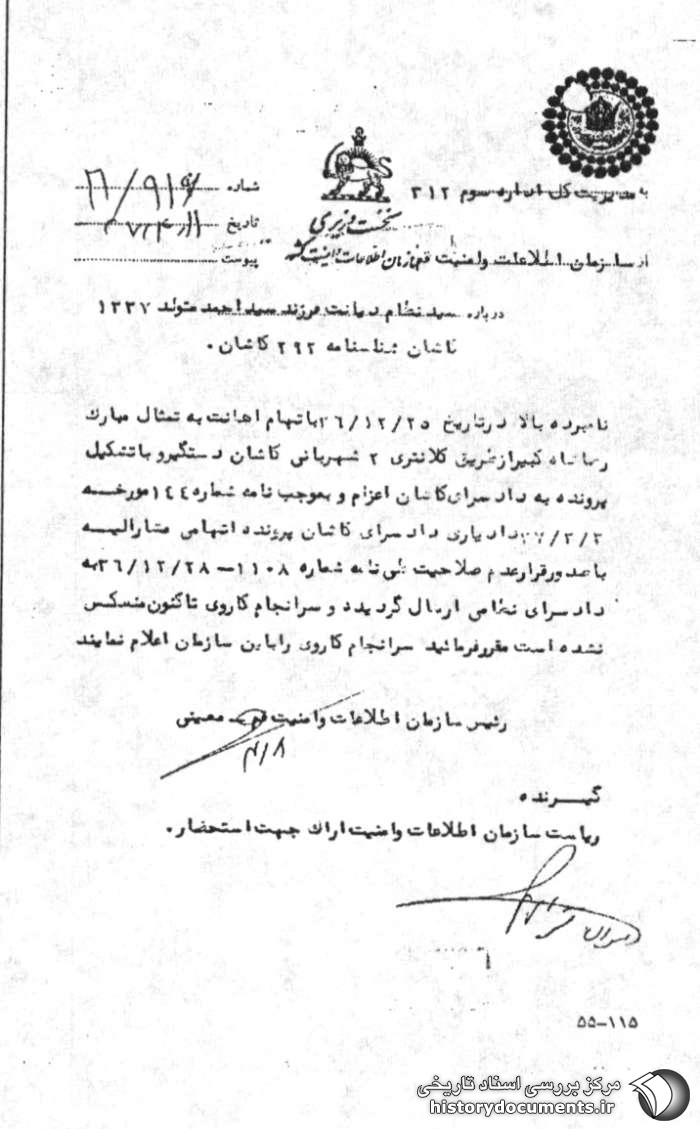 به مدیریت کل اداره سوم ۳۱۲
نخست وزیری
از سازمان اطلاعات و امنیت قم سازمان اطلاعات و امنیت کشور
شماره
تاریخ
پیوست
درباره سید نظام دیانت فرزند سید احمد متولد ۱۳۳۷
کاشان شناسنامه ۲۹۲ کاشان .
نامبرده بالا در تاریخ ۳۶/۱۲/۲۵ باتهام اهانت به تمثال مبارک
رضا شاه کبیر از طریق کلانتری ۲ شهربانی کاشان دستگیر و با تشکیل
پرونده به دادسرای کاشان اعزام و بموجب نامه شماره ۱۴۴ مورخه
۳۷/۲/۲ دادیاری دادسرای کاشان پرونده اتهامی مشارالیه
با صدور قرار عدم صلاحیت طی نامه شماره ۱۱۰۸-۳۶/۱۲/۲۸ به
دادسرای نظامی ارسال گردیده و سرانجام کار وی تاکنون منعکس
نشده است مقرر فرمائید سرانجام کار وی را باین سازمان اعلام نمایند
رئیس سازمان اطلاعات و امنیت قم . معینی
۴/۸
گیرنده
ریاست سازمان اطلاعات و امنیت اراک جهت استحضار .
۵۵-۱۱۵
مرکز بررسی اسناد تاریخی
historydocuments.ir